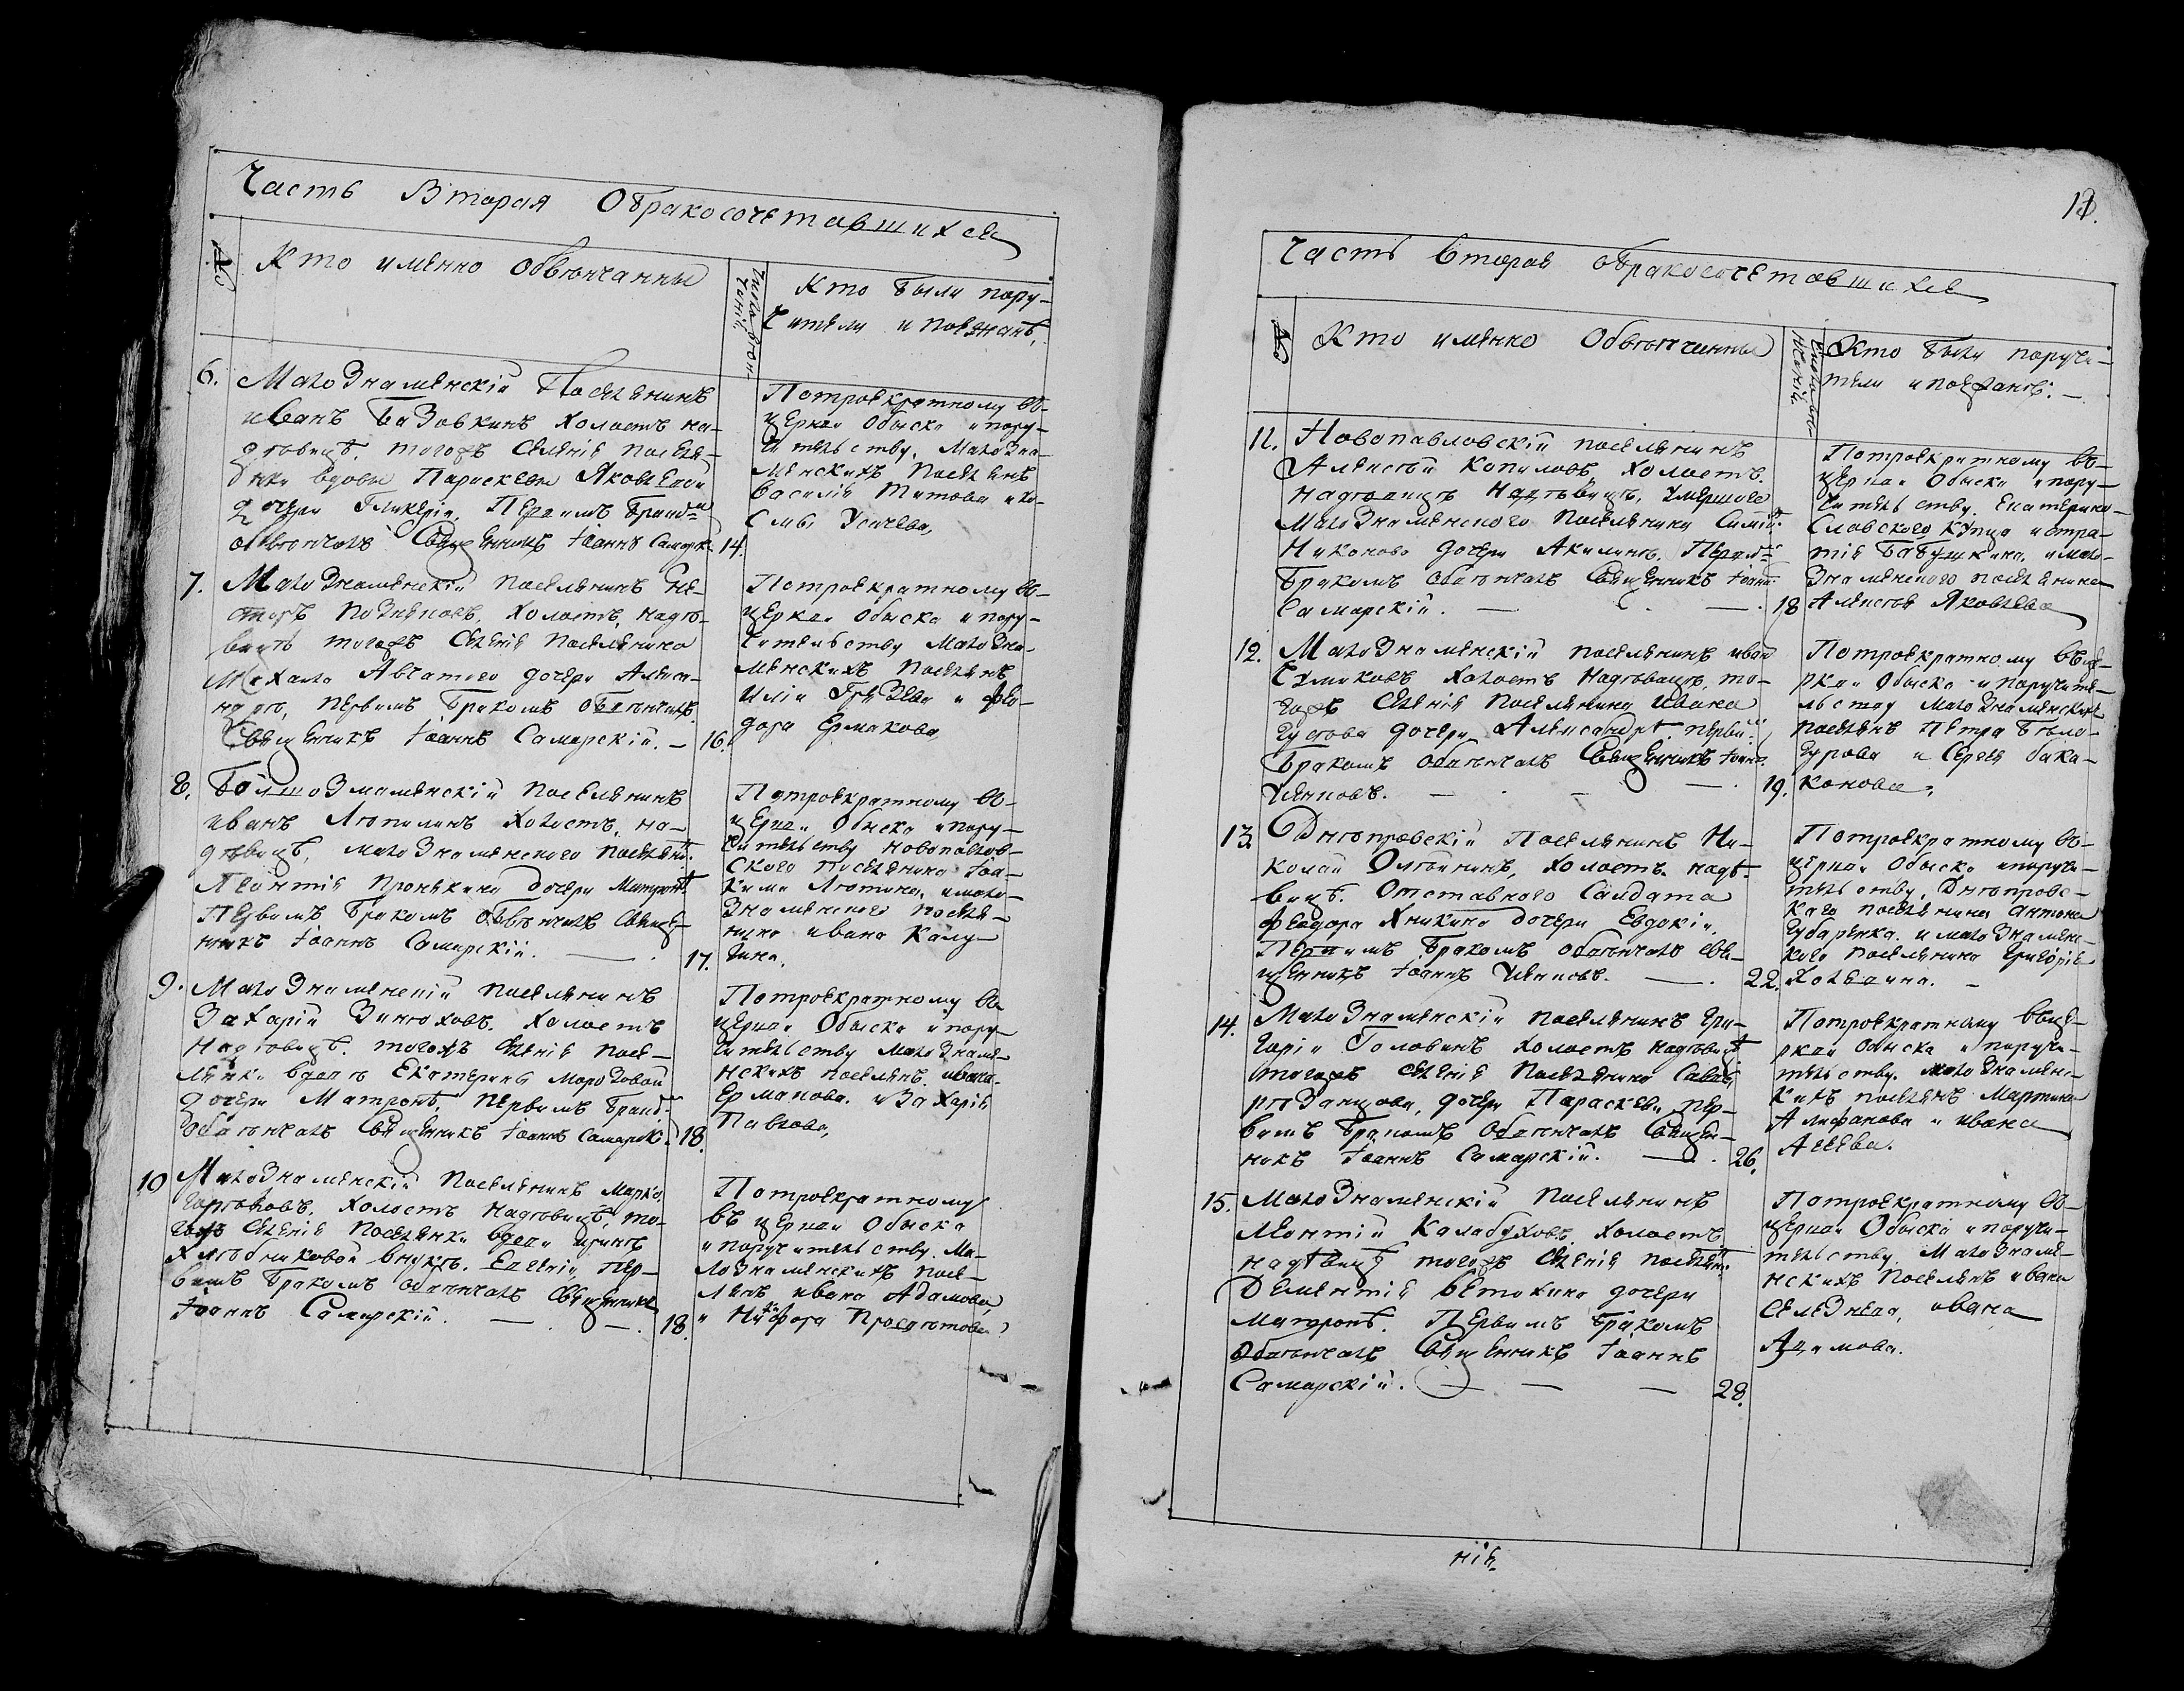 Часть Вторая Обракосочетавшихся
№
Кто именно Обвѣнчанны
Число вѣн-
чаній.
Кто были пору-
чители и поезжанѣ,
6.
Малознаменскій Поселянинъ
иванъ Базовкинъ холостъ на-
дѣвицѣ, тогожъ селенія поселя-
нки вдовы Параскевы Яковлевой
дочери Гликеріи, Первымъ Брако-
обвѣнчалъ Священникъ Іоаннъ Самарск.
14.
Потроекратному во-
церкви Обыску и пору-
чительству. Малозна-
менскихъ поселянъ
Василія Титова и

7.
Малознаменскій поселянинъ Не-
сторъ Поздняковъ, холостъ, надѣ-
вицѣ тогожъ селенія поселянина
Михаила дочери
Первымъ Бракомъ Обвѣнчалъ
Священникъ Іоаннъ Самарскій. –
16.
Потроекратному во-
церкви Обыску и пору-
чительству Малозна-
менскихъ Поселянъ
Иліи и Фео-
дора Ермакова
8.
Большознаменскій поселянинъ
иванъ холостъ, на-
дѣвицѣ, малознаменского поселян.
Леонтія дочери Матроне
Первымъ Бракомъ Обвѣнчалъ Священ-
никъ Іоаннъ Самарскій. —
17.
Потроекратному во-
церкви Обыску и пору-
чительству новопавлов-
ского поселянина Іоа-
кима Лютина, и мало-
знаменского поселя-
нина ивана Калу-
гина.
9.
Малознаменскій поселянинъ
Захарій Зинюховъ. холостъ
надѣвицѣ. тогожъ селенія посе-
лянки вдовы Екатерины Морозовой
дочери Матроне, Первымъ Брако-
Обвѣнчалъ Священникъ Іоаннъ Самарск.
18.
Потроекратному во
церкви Обыску и пору
чительству Малознаме-
нскихъ поселянъ. ивана
Ермакова. и Захарія
Павлова,
10
Малознаменскій поселянинъ Марко
холостъ надѣвицѣ, то-
гожъ селенія поселянки вдовы ирины
Хлѣбниковой внукѣ. Евгеніи, Пер-
вымъ Бракомъ обвѣнчалъ Священникъ
Іоаннъ Самарскій. — —.
18.
Потроекратному
въ церкви Обыску
и поручительству. Ма-
лознаменскихъ посе-
лянъ ивана Адамова,
и Никифора Просвѣтова
13.
Часть вторая обракосочетавшихся
№
Кто именно Обвѣнчанны
Число вѣнчаній
Кто были поручи-
тели и поезжанѣ. —
11.
Новопавловскій поселянинъ
Алексѣй Копиловъ, холостъ.
надѣвицѣ умершого
Малознаменского Поселянина
Никонова дочери Акилине. Первы-
Бракомъ обвѣнчалъ Священникъ Іоаннъ
Самарскій. — —.
18
Потроекратному во-
церкви Обыску и пору-
чительству. Екатерино-
славского купца
Бабушкина, и мало-
знаменского поселянина
Алексѣя Яковлева
12.
Малознаменскій поселянинъ иван
Чумаковъ холостъ надѣвицѣ, то-
гожъ селенія поселянина ивана
дочери Александре. первы-
Бракомъ обвѣнчалъ Священникъ Іоанн.
— — —.
19.
Потроекратному въ це-
ркви Обыску и поручите-
льству малознаменскихъ
поселянъ Петра Бѣло-
гурова и Сергея бака-
нова.
13.
Днѣпровскій поселянинъ Ни-
колай холостъ надѣ-
вицѣ. Отставного Салдата
Феодора Аникина дочери Евдокіи,
Первымъ Бракомъ обвѣнчалъ свя-
щенникъ Іоаннъ —.
22.
Потроекратному во-
церкви Обыску и поручи-
тельству. Днѣпровс-
кого поселянина антона
Губаренка и малознаменс-
кого поселянина григорія
14.
Малознаменскій поселянинъ гри-
горій Головинъ холостъ надѣвицѣ
тогожъ селенія поселянина Савы
дочери Параскевы, пер-
вымъ Бракомъ обвѣнчалъ Священ-
никъ Іоаннъ Самарскій. —.
26.
Потроекратному въ це-
ркви Обыску и поручи-
тельству. малознаменс-
кихъ поселянъ Мартина
Алифанова и ивана
Агеева.
15.
Малознаменскій поселянинъ
Леонтій Калабуховъ. холостъ
надѣвицѣ тогожъ селенія поселян.
Дементія дочери
Матроне. Первымъ Бракомъ
Обвѣнчалъ Священникъ Іоаннъ
Самарскій. — — —
28.
Потроекратному во-
церкви Обыску и поручи-
тельству. Малознаме-
нскихъ поселянъ ивана
Селезнева, ивана
Адамова.
нія.